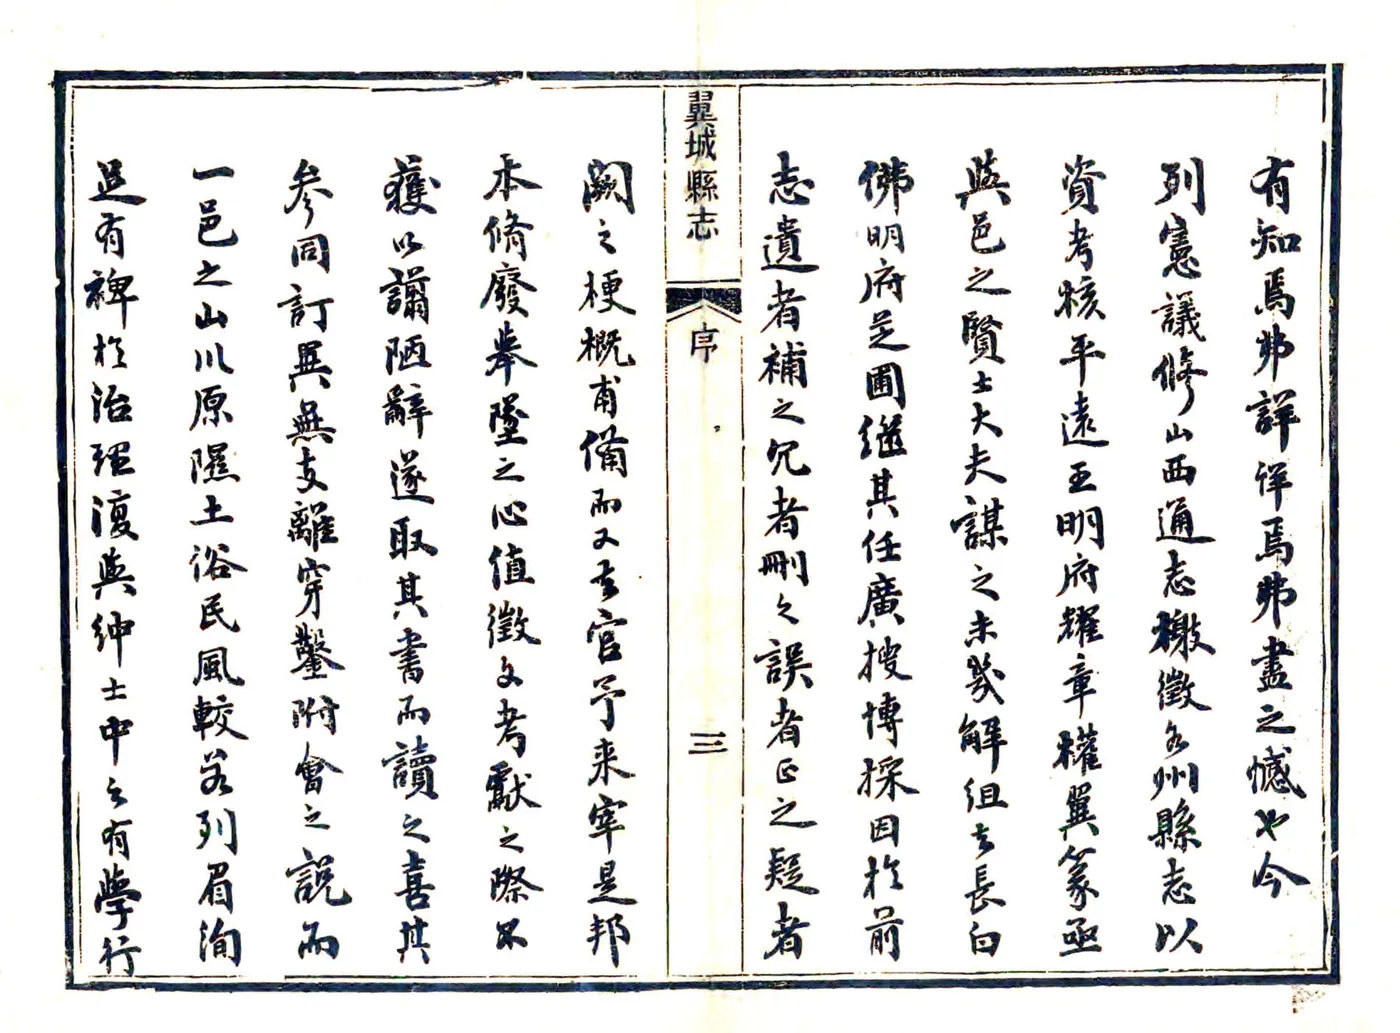 有知焉弗詳詳焉弗盡之憾也今
列憲議修山西通志檄徵各州縣志以
資考核平遠王明府耀章權翼篆亟
與邑之賢士大夫謀之未幾解組去長白
佛明府芝圃繼其任廣搜博採因於前
志遺者補之冗者刪之誤者正之疑者
翼城縣志
序
三
闕之梗概甫備而又去官予來宰是邦
本脩廢舉墜之心值徵文考獻之際不
獲以謭陋辭遂取其書而讀之喜其
參同訂異無支離穿鑿附會之說而
一邑之山川原隰土俗民風較若列眉洵
足有裨於治理復與紳士中之有學行